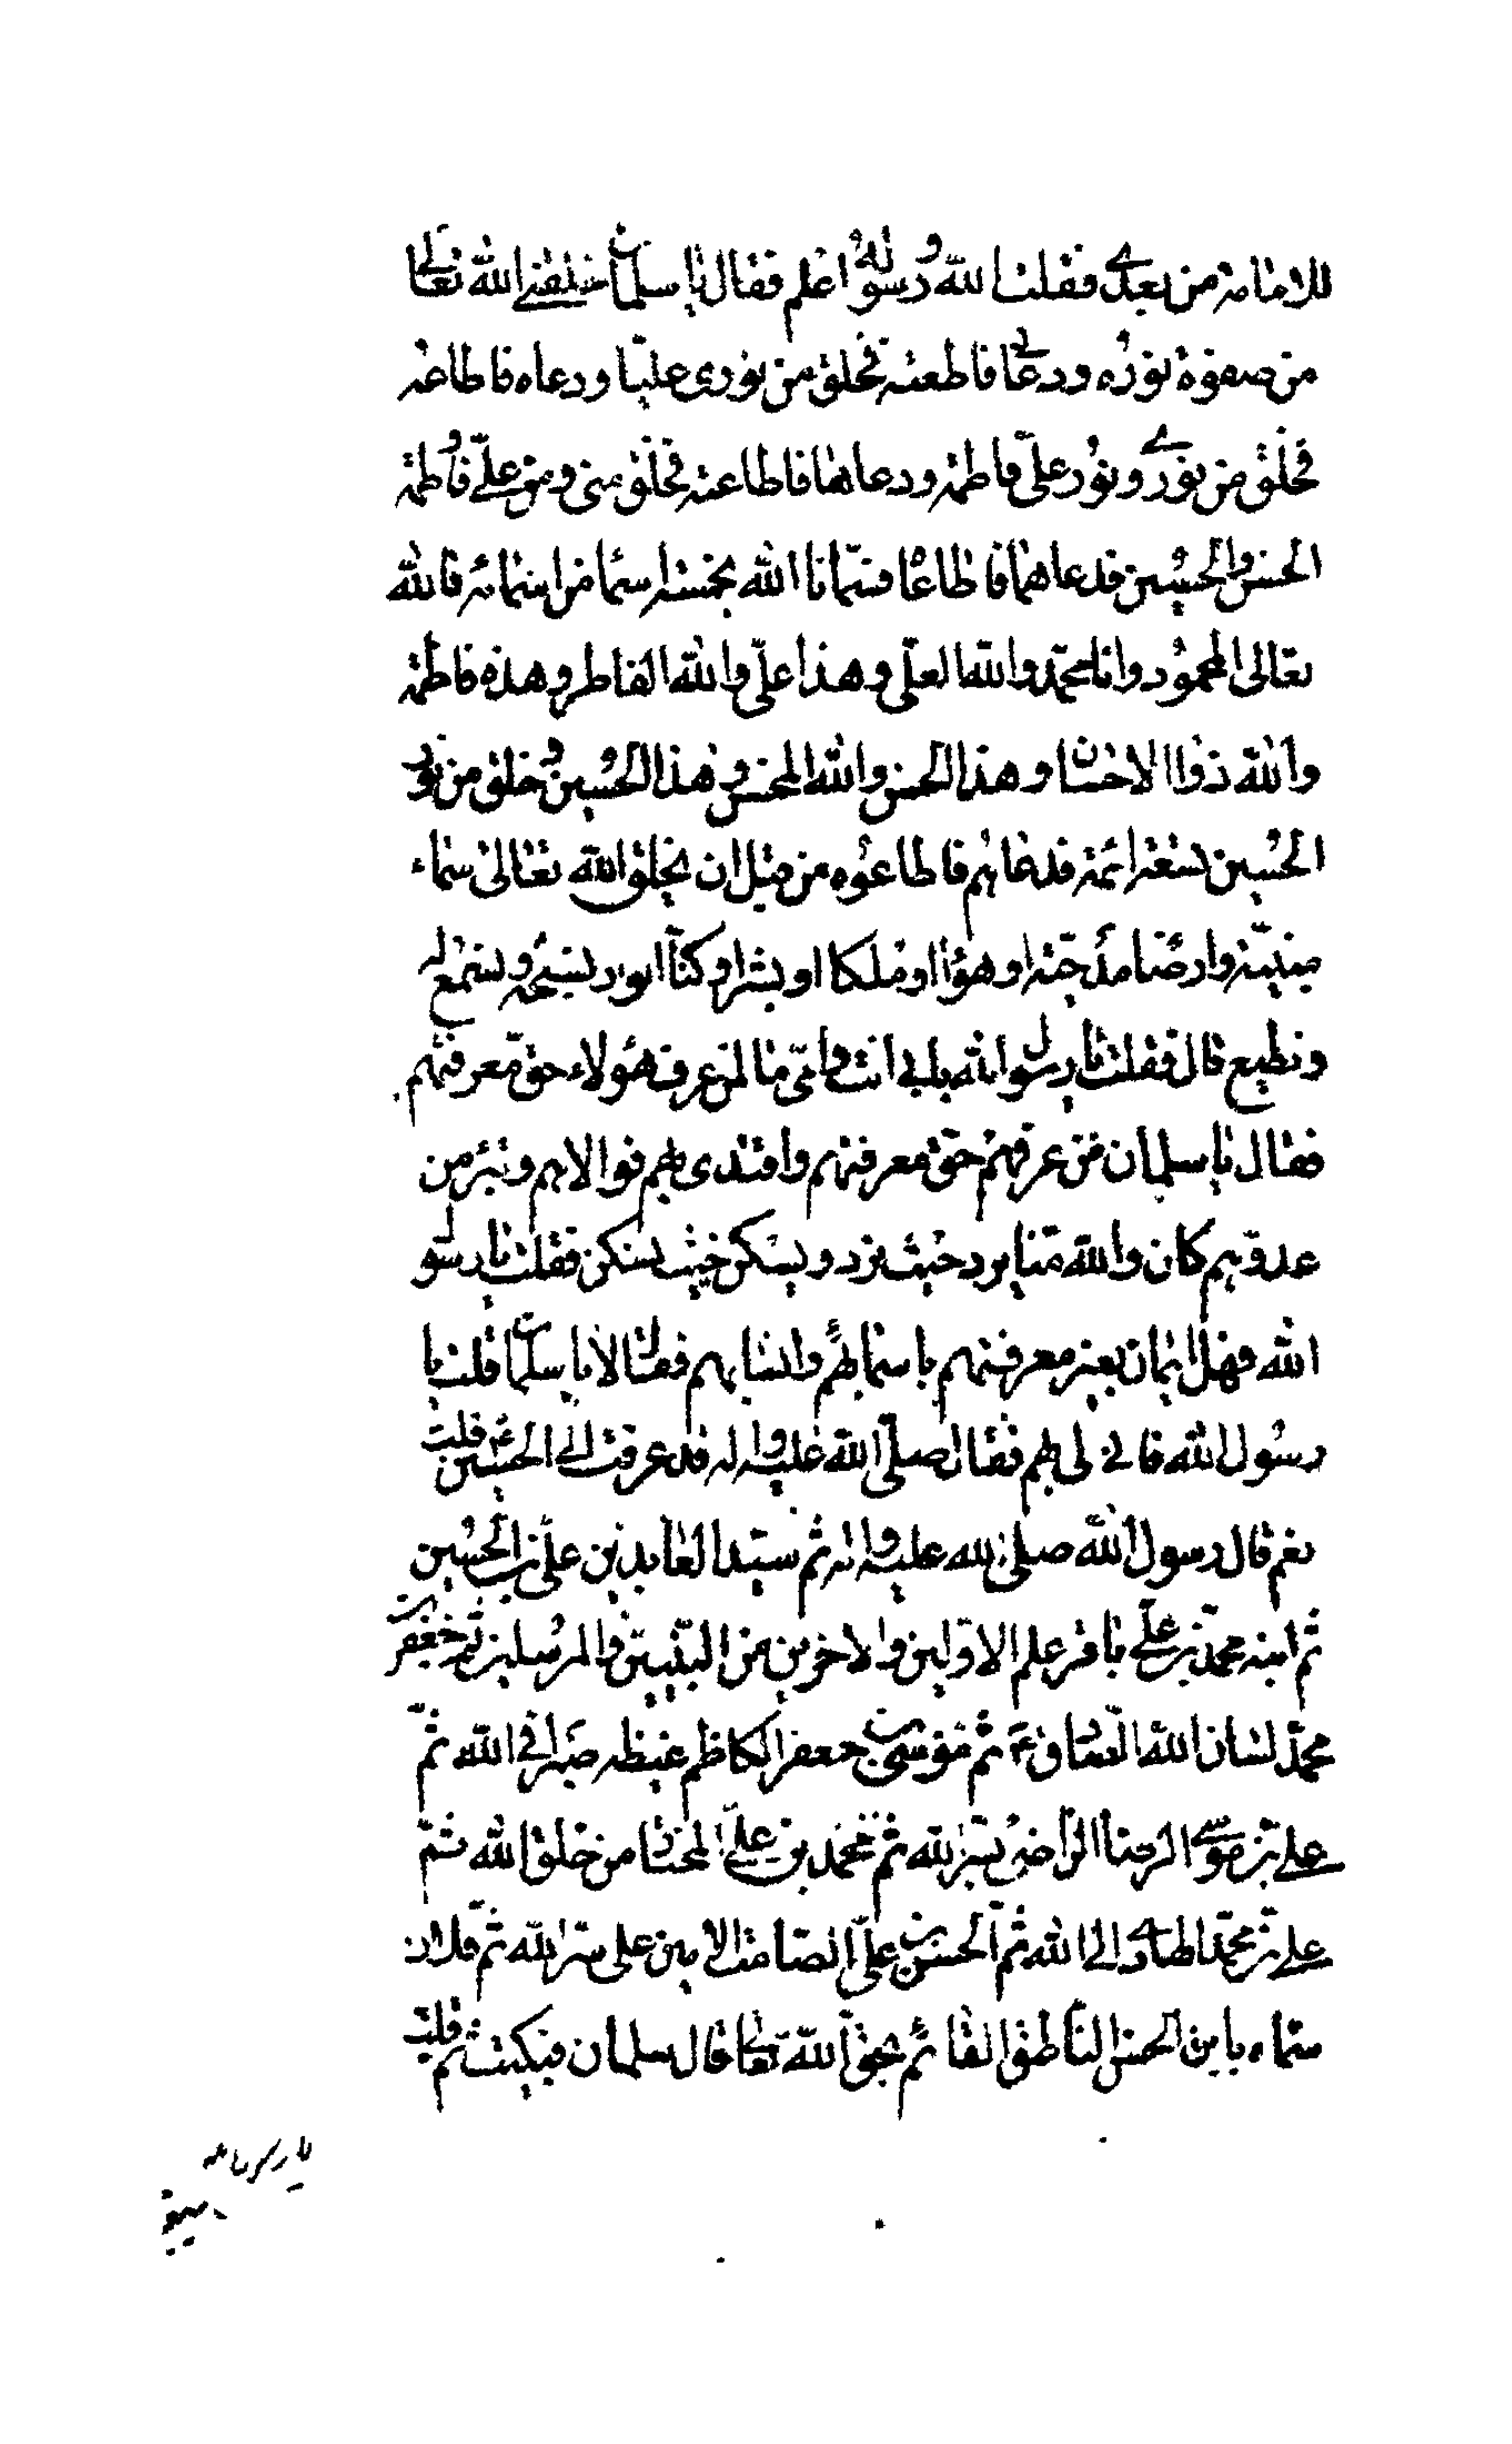 للامامة من بعدي فقلت الله ورسوله اعلم فقال يا سلمان خلقني الله تعالى
من صفوة نوره ودعاني فاطعته فخلق من نوري عليّا ودعاه فاطاعه
فخلق من نوري ونور عليّ فاطمة ودعاها فاطاعته فخلق مني ومن عليّ وفاطمة
الحسن والحسين فدعاهما فاطاعا فسمّانا الله بخمسة اسما من اسمائه فالله
تعالى المحمود وانا محمّد والله العلّي وهذا عليّ والله الفاطر وهذه فاطمة
والله ذوا الاحسان وهذا الحسن والله المحسن وهذا الحسين وخلق من نور
الحسين تسعة ائمة فدعاهم فاطاعوه من قبل ان يخلق الله تعالى سماء
مبنيّة وارضا مدحيّة او هوا او ملكا او بشرا وكنّا انوار نسبّحه ونسمع له
ونطيع قال فقلت يا رسول الله بابي انت وامّي ما لمن عرف هؤلاء حقّ معرفتهم
فقال يا سلمان من عرفهم حقّ معرفتهم واقتدى بهم فوالاهم وتبرء من
عدوّهم كان والله منّا يرد حيث نرد ويسكن حيث نسكن فقلت يا رسو
الله فهل ايمان بغير معرفتهم باسمائهم وانسابهم فقال لا يا سلمان قلت يا
رسول الله فاني لي بهم فقال صلّى الله عليه واله قد عرفت الى الحسين ع قلت
نعم قال رسول الله صلى الله عليه واله ثم سيّد العابدين علّي بن الحسين
ثم ابنه محمّد بن علي باقر علم الاوّلين والاخرين من النبيّين والمرسلين ثم جعفر بن
محمّد لسان الله الصادق ع ثم موسى بن جعفر الكاظم غيظه صبرا في الله ثمّ
علي بن موسى الرضا الراضي بسرّ الله ثم محمد بن علي المختار من خلق الله ثمّ
علي بن محمّد الهادي الى الله ثم الحسن بن عليّ الصامت الامين على سرّ الله ثمّ فلان
سماه باين الحسن الناطق القائم بحق الله تعالى قال سلمان فبكيت ثم قلت
يا رسول الله